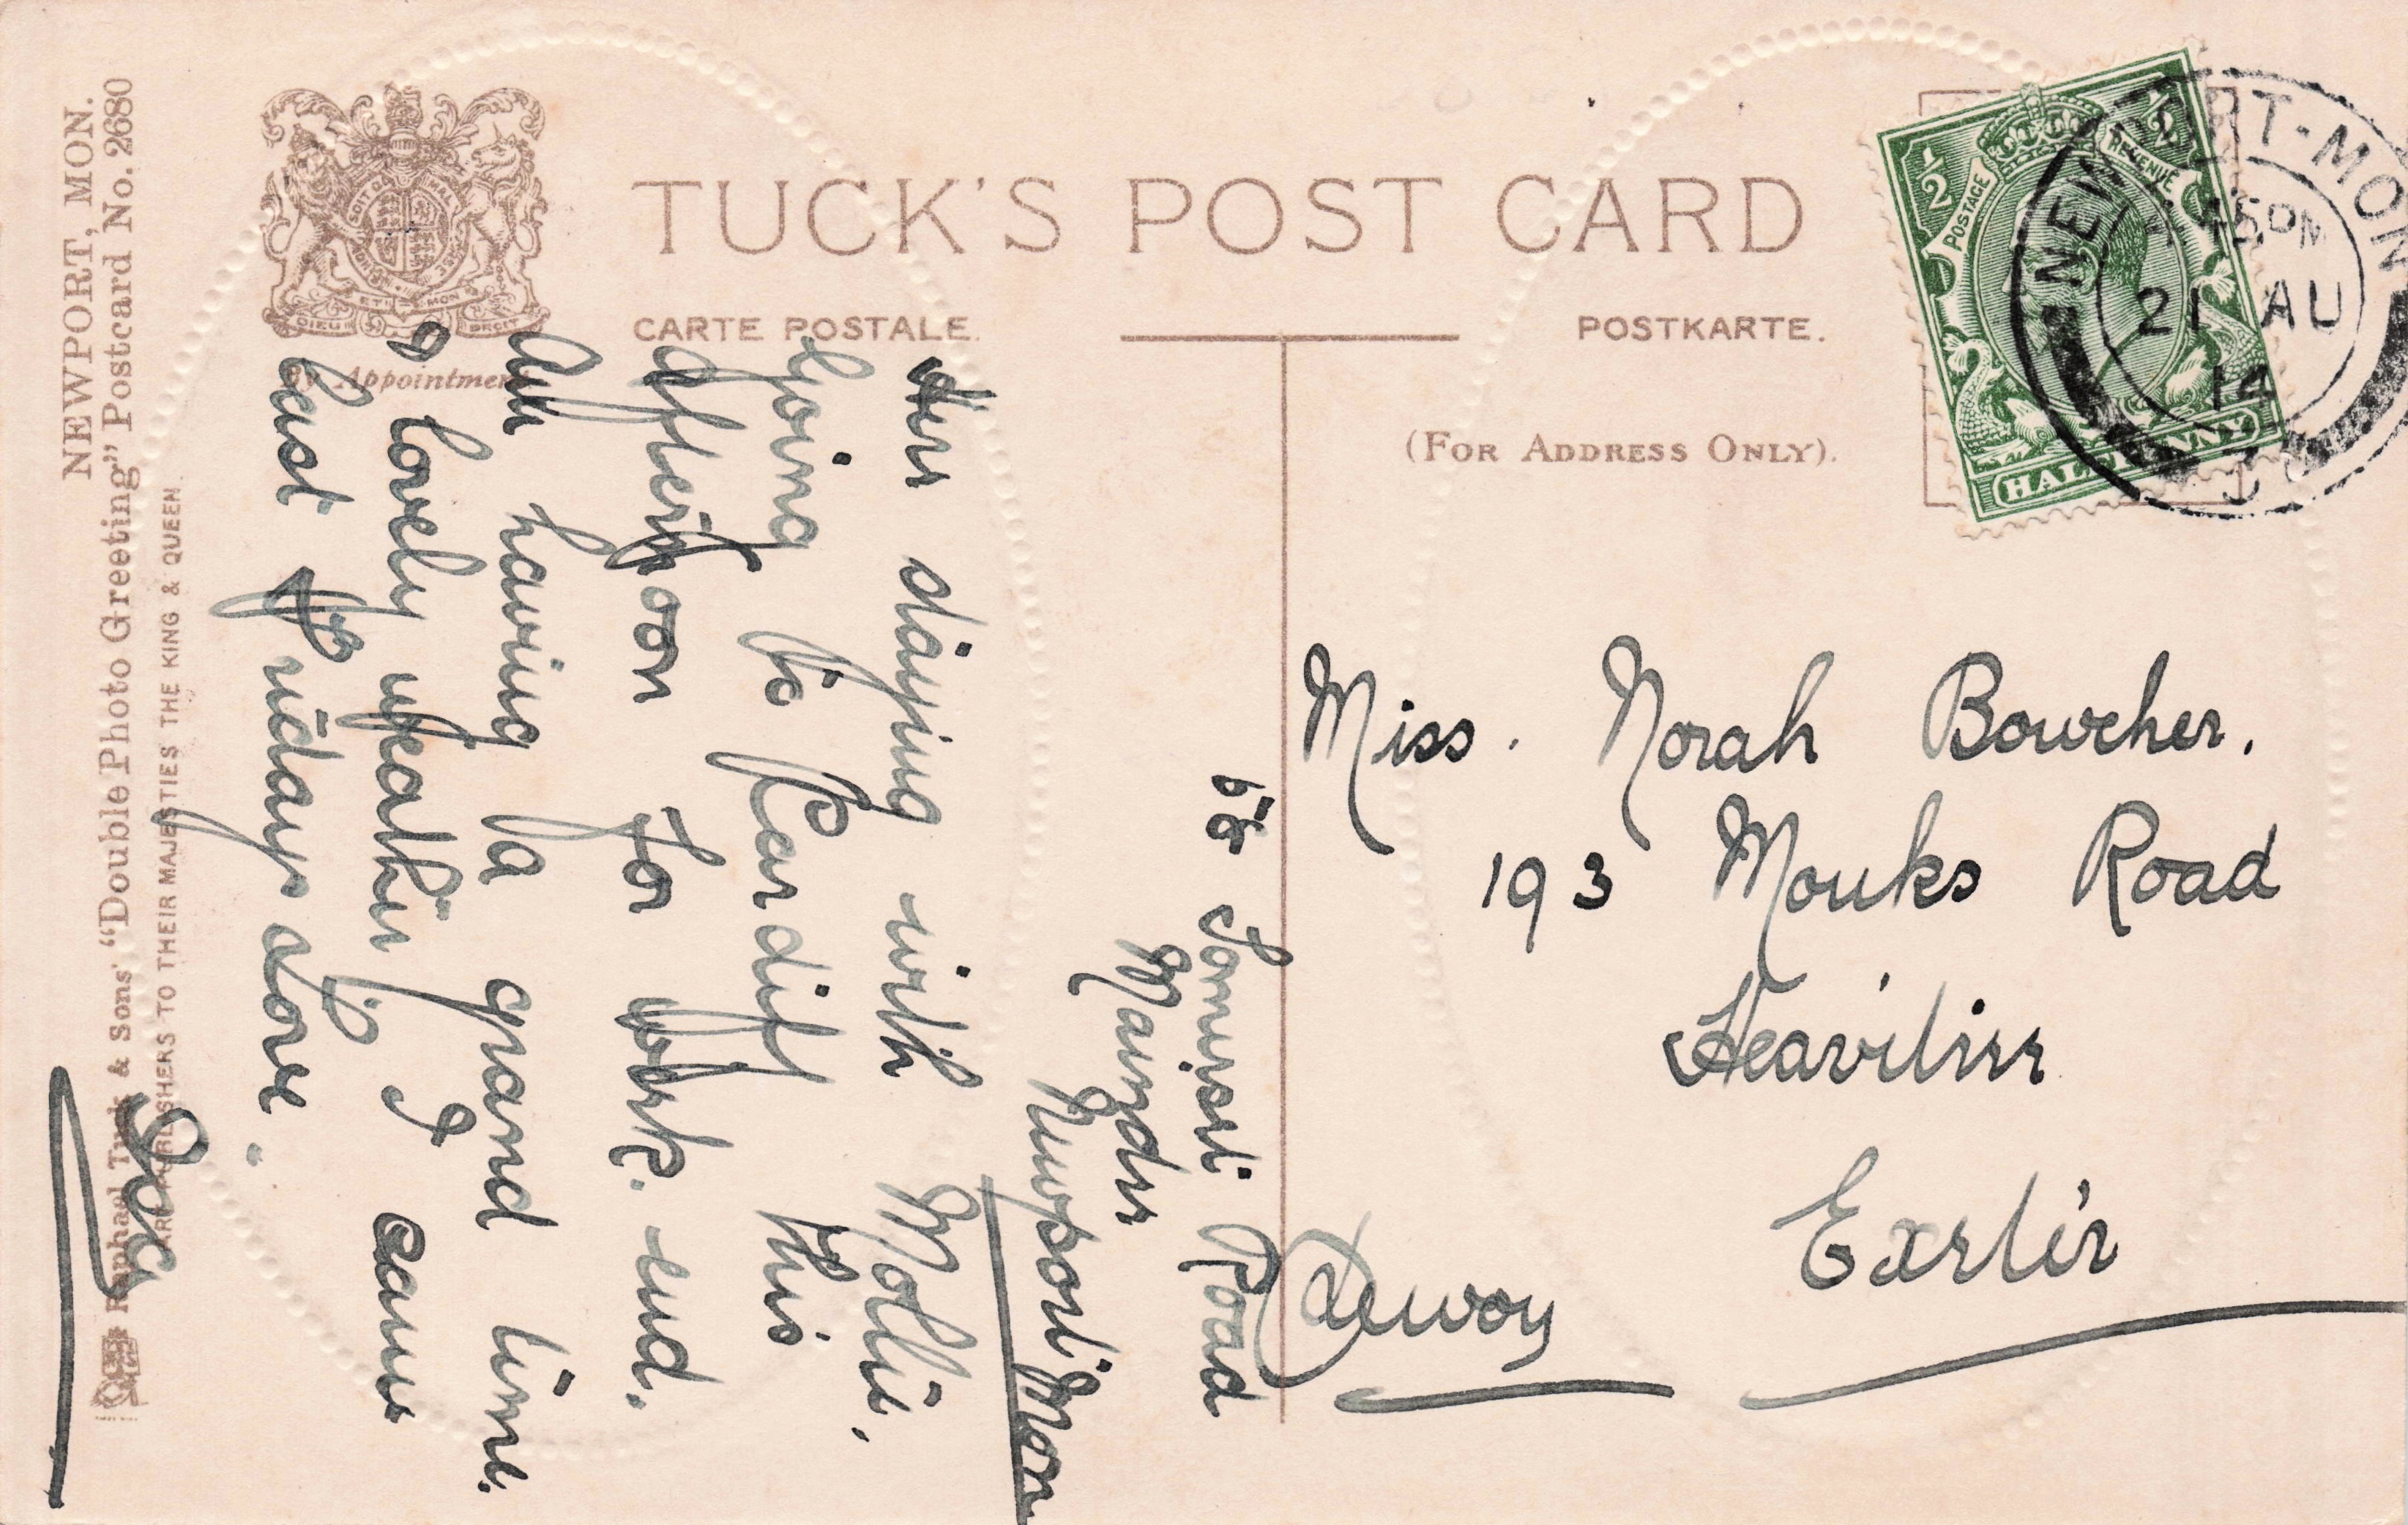 NEWPORT, MON.
Raphael Tuck & Sons' "Double Photo Greeting" Postcard No. 2680
ART PUBLISHERS TO THEIR MAJESTIES THE KING & QUEEN.
TUCK'S POST CARD
CARTE POSTALE.
POSTKARTE.
By Appointment
(FOR ADDRESS ONLY).
DIEU ET MON DROIT
POSTAGE
REVENUE
½
½
HALFPENNY
NEWPORT-MON
15 PM
21 AU
14
Somerset Road
Maindee
Newport Mon
Am staying with Mollie.
Going to Cardiff this
afternoon for week end.
Am having a grand time.
lovely weather I came
last Fridays Love.
Miss. Norah Bowcher.
193 Monks Road
Heavitree
Exeter
Devon